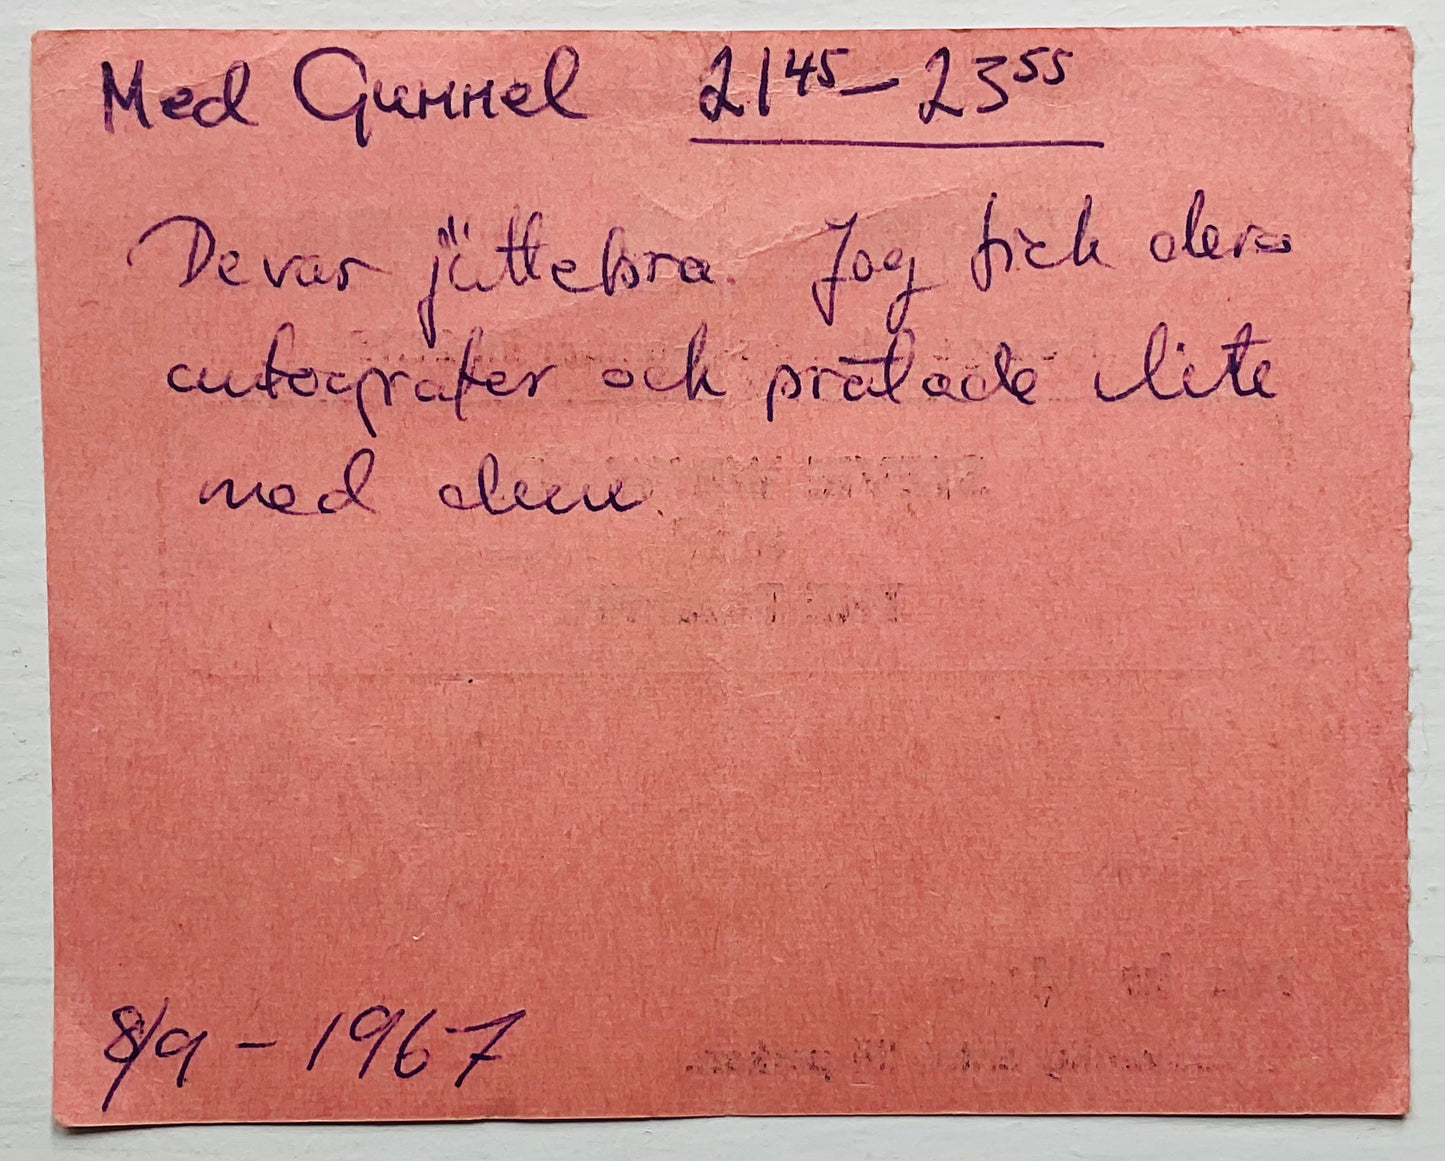 Med Gunnel 21⁴⁵–23⁵⁵
De var jättebra. Jag fick deras
autografer och pratade lite
med dem.
8/9 – 1967